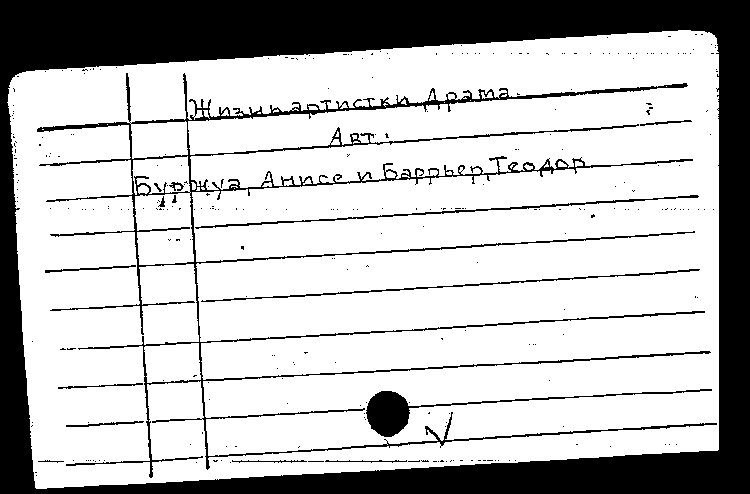 Жизнь артистки. Драма.
Авт.:
Буржуа, Анисе и Баррьер, Теодор